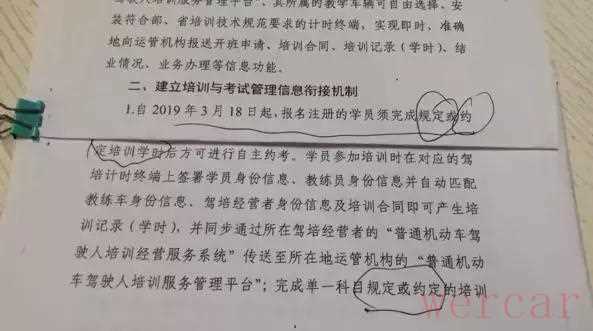 驾驶人培训服务管理平台”、其所属的教学车辆可自由选择、安
装符合部、省培训技术规范要求的计时终端，实现即时、准确
地向运管机构报送开班申请、培训合同、培训记录（学时）、结
业情况、业务办理等信息功能。
二、建立培训与考试管理信息衔接机制
1.自 2019 年 3 月 18 日起，报名注册的学员须完成规定或约
定培训学时后方可进行自主约考。学员参加培训时在对应的驾
培计时终端上签署学员身份信息、教练员身份信息并自动匹配
教练车身份信息、驾培经营者身份信息及培训合同即可产生培
训记录（学时），并同步通过所在驾培经营者的“普通机动车驾
驶人培训经营服务系统”传送至所在地运管机构的“普通机动
车驾驶人培训服务管理平台”；完成单一科目规定或约定的培训
wercar